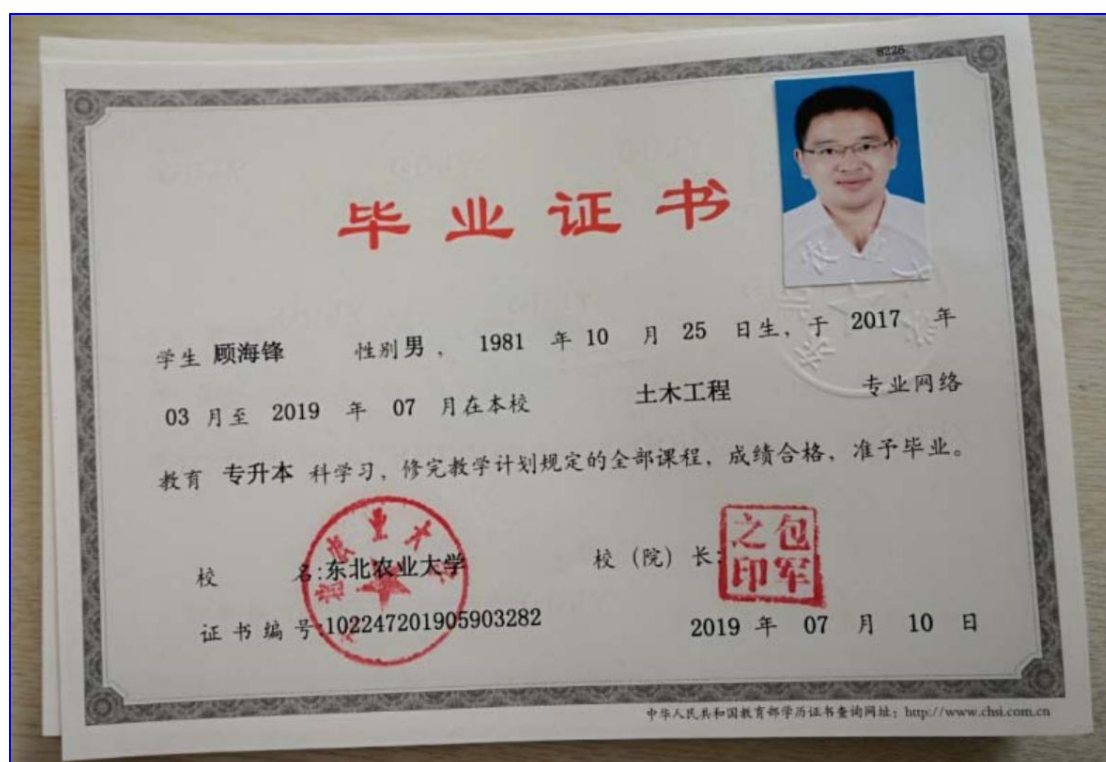 8226
毕业证书
学生 顾海锋 性别 男 , 1981 年 10 月 25 日生, 于 2017 年
03 月至 2019 年 07 月在本校 土木工程 专业网络
教育 专升本 科学习, 修完教学计划规定的全部课程, 成绩合格, 准予毕业。
校 名:东北农业大学 校 (院) 长:
之包
印军
证 书 编 号:102247201905903282 2019 年 07 月 10 日
中华人民共和国教育部学历证书查询网址: http://www.chsi.com.cn